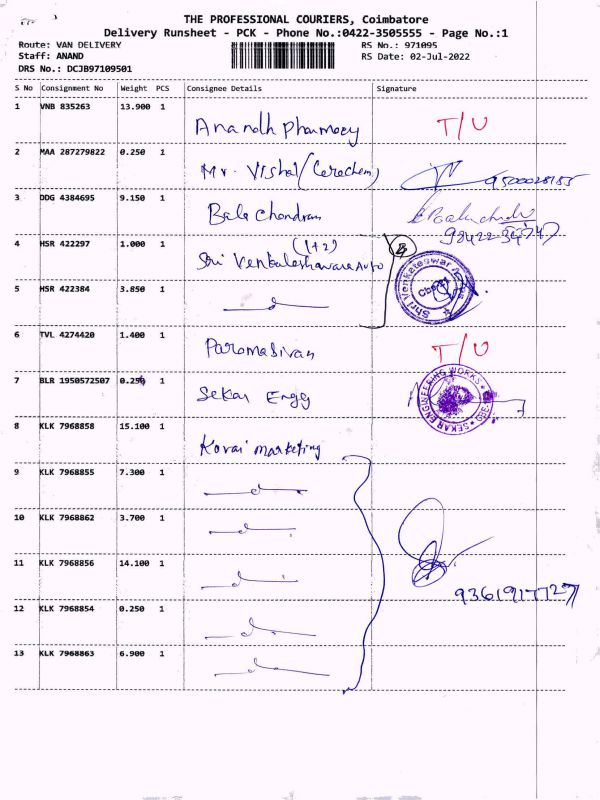 THE PROFESSIONAL COURIERS, Coimbatore
Delivery Runsheet - PCK - Phone No.:0422-3505555 - Page No.:1
Route: VAN DELIVERY RS No.: 971095
Staff: ANAND RS Date: 02-Jul-2022
DRS No.: DCJB97109501
S No Consignment No Weight PCS Consignee Details Signature
1 VNB 835263 13.900 1
Anandh pharmacy T/U
2 MAA 287279822 0.250 1
Mr. Vishal (Cerachem)
3 DDG 4384695 9.150 1
Bala Chandran
4 HSR 422297 1.000 1
(1+2)
Sri Venkateshwara Auto
5 HSR 422384 3.850 1
6 TVL 4274420 1.400 1
Paromasivan T/U
7 BLR 1950572507 0.250 1
Sekar Engg
SEKAR ENGINEERING WORKS
8 KLK 7968858 15.100 1
Kovai marketing
9 KLK 7968855 7.300 1
10 KLK 7968862 3.700 1
11 KLK 7968856 14.100 1
9361917727
12 KLK 7968854 0.250 1
13 KLK 7968863 6.900 1